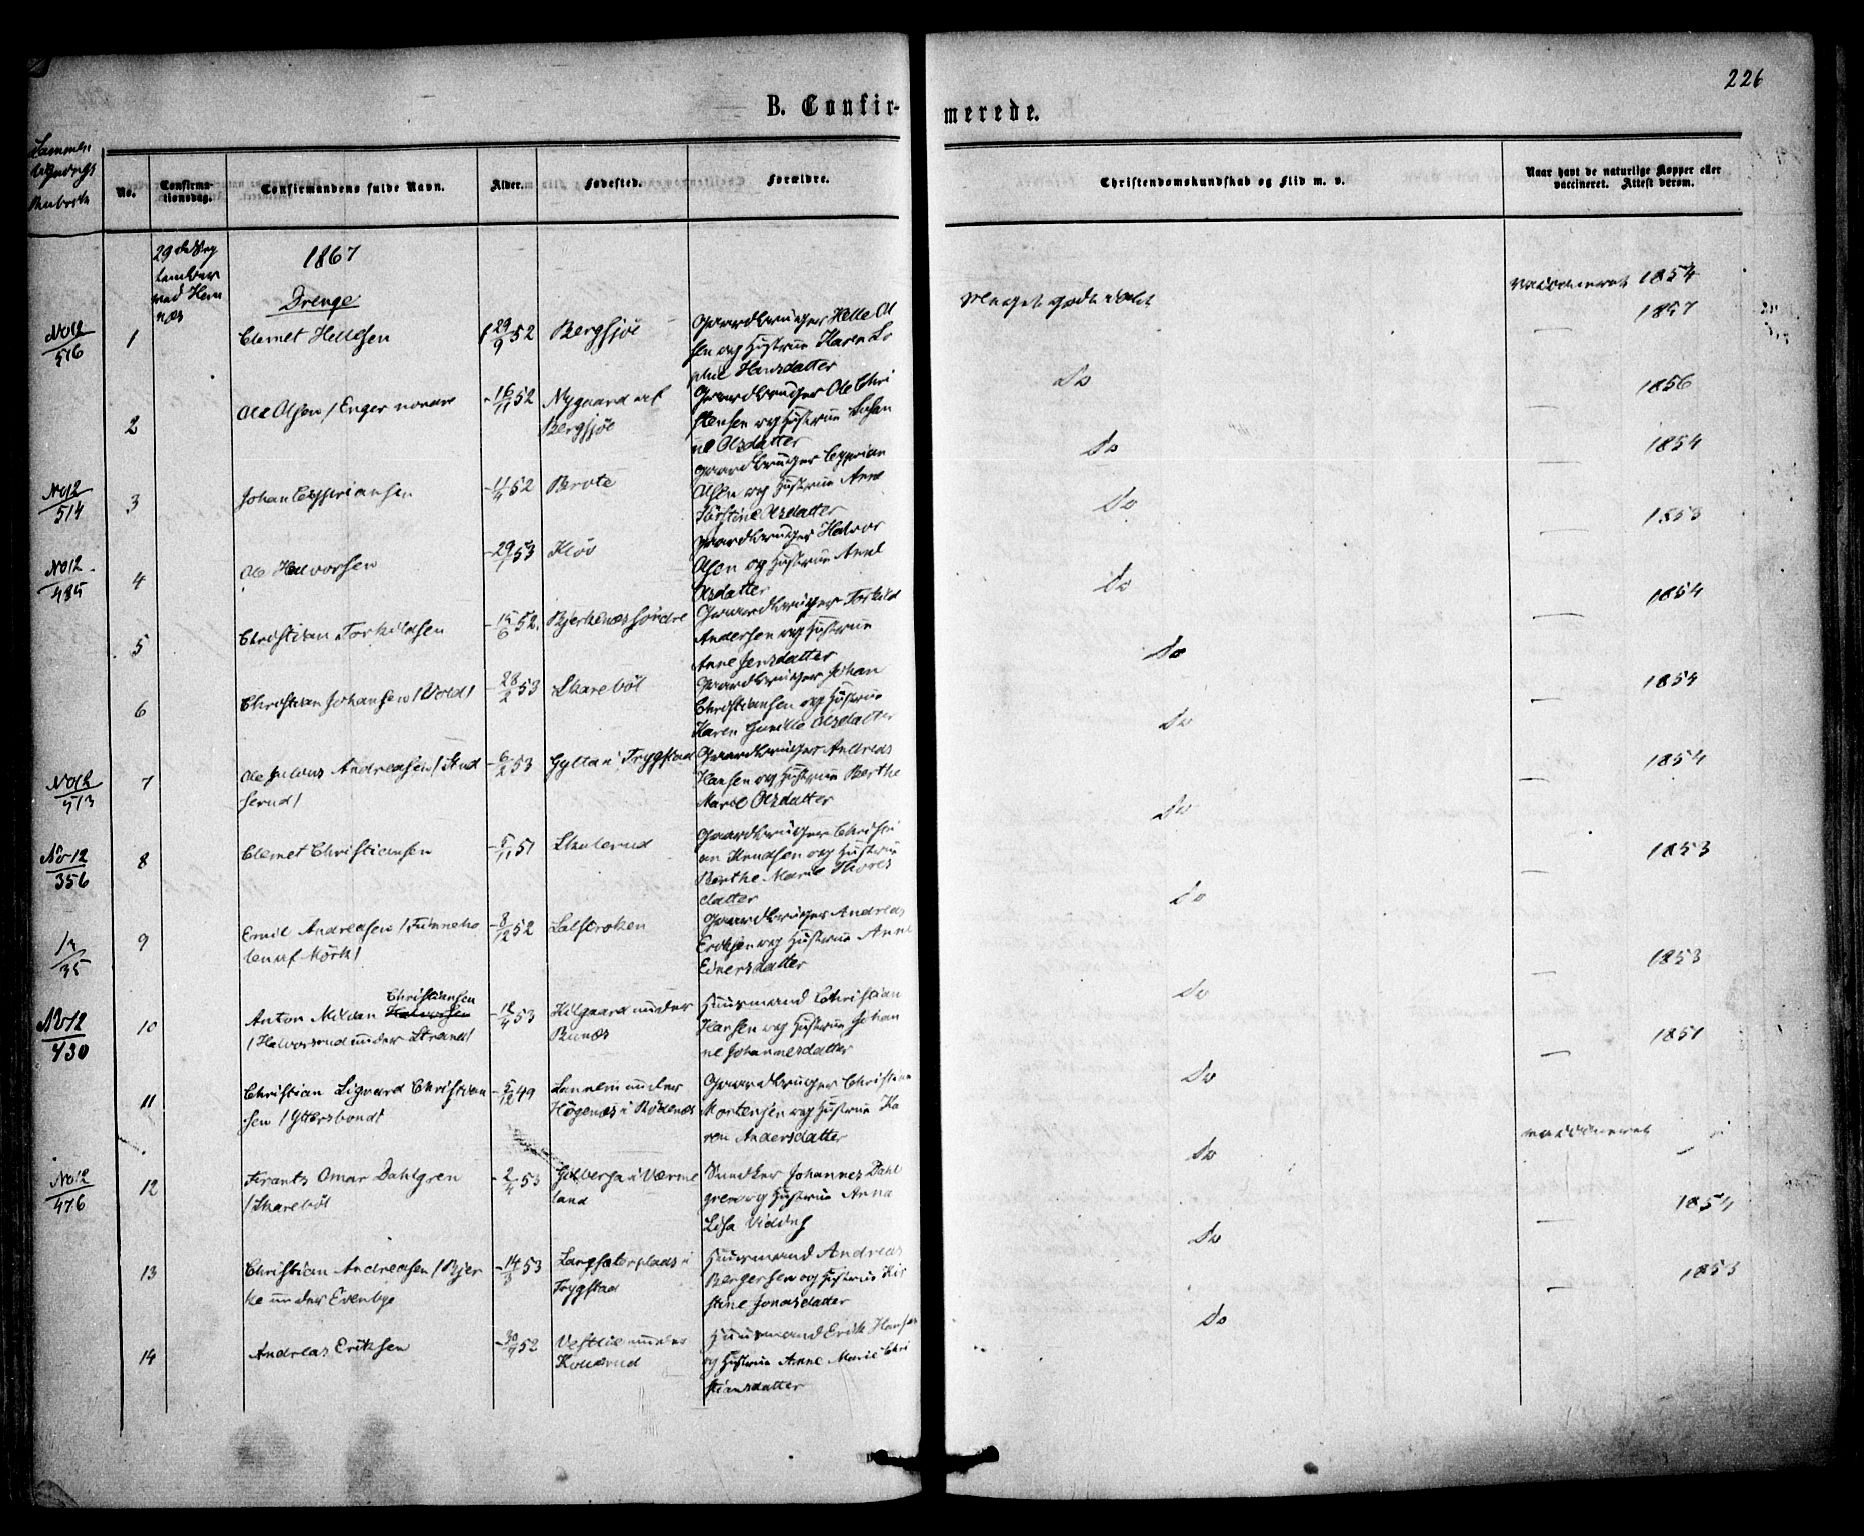 226
B. Confirmerede.
Sammen
No.
Confirmationsdag.
Confirmandens fulde Navn.
Alder.
Fødested.
Forældre.
Christendomskundskab og Flid m. v.
Naar havt de naturlige Kopper eller vaccineret. Attest derom.
29de Sep
tember
ved Hem
næs
1867
Drenge
No12/516
1
Clemet Hellesen
f 29/9 52
Bergsjøe
Gaardbruger Helle Ol
sen og Hustrue Karen So
phie Hansdatter
Meget godt
vaccineret 1854
— 1857
2
Ole Olsen /Enger nordre
- 16/11 52
Nygaard af
Bergsjøe
Gaardbruger Ole Chri
stensen og Hustrue Susan
ne Olsdatter
Do
— 1856
No12/514
3
Johan Cyprianse​n
- 11/4 52
Brote
Gaardbruger Cyprian
Olsen og Hustrue Anne
Kirstine Olsdatter
Do
— 1854
No12/485
4
Ole Halvorsen
- 29/1 53
Kløv
Gaardbruger Halvor
Olsen og Hustrue Anne
Olsdatter
Do
— 1853
5
Christian Torkildsen
- 15/6 52.
Bjerkenæs søndre
Gaardbruger Torkild
Andersen og Hustrue
Anne Jensdatter
Do
— 1854
6
Christian Johansen /Vold/
- 28/2 53
Skarebøl
Gaardbruger Johan
Christiansen og Hustrue
Karen Gunille Olsdatter
Do
— 1854
No12/513
7
Ole Julius Andreasen /Knud
serud/
- 6/2 53
Gylta i Trygstad
Gaardbruger Andreas
Hansen og Hustrue Berthe
Marie Olsdatter
Do
— 1854
No 12/356
8
Clemet Christiansen
- 5/11 51
Skulerud
Gaardbruger Christi
an Knudsen og Hustrue
Berthe Marie Thores
datter
Do
— 1853
12/35
9
Emil Andreasen /Tønneho
len af Mørk/
- 8/12 52
Gaardbruger Andreas
Eriksen og Hustrue Anne
Einersdatter
Do
— 1853
No 12/430
10
Christiansen
Anton Milian Halvorsen
/Halvorsrud under Strand/
- 12/4 53
Kilgaard under
Bunæs
Huusmand Christian
Hansen og Hustrue Johan
ne Johannesdatter
Do
— 1851
11
Christian Sigvard Christian
sen /Yttersbond/
- 5/12 49
under
Høgenæs i Rødenæs
Gaardbruger Christian
Mortensen og Hustrue Ka
ren Andersdatter
Do
vaccineret
No12/476
12
Frants Omar Dahlgren
/Skarebøl
- 2/4 53
Gilberga i Værme
land
Snedker Johannes Dahl
gren og Hustrue Anna
Lisa Viding
Do
— 1854
13
Christian Andreasen /Bjer
ke under Evenbye
- 14/3 53
Langsæterplads i
Trygstad
Huusmand Andreas
Bergersen og Hustrue Kir
stine Jonasdatter
Do
— 1853
14
Andreas Eriksen
- 30/9 52
Vestlie under
Kollerud
Huusmand Erik Hansen
og Hustrue Anne Marie Chri
stiansdatter
Do